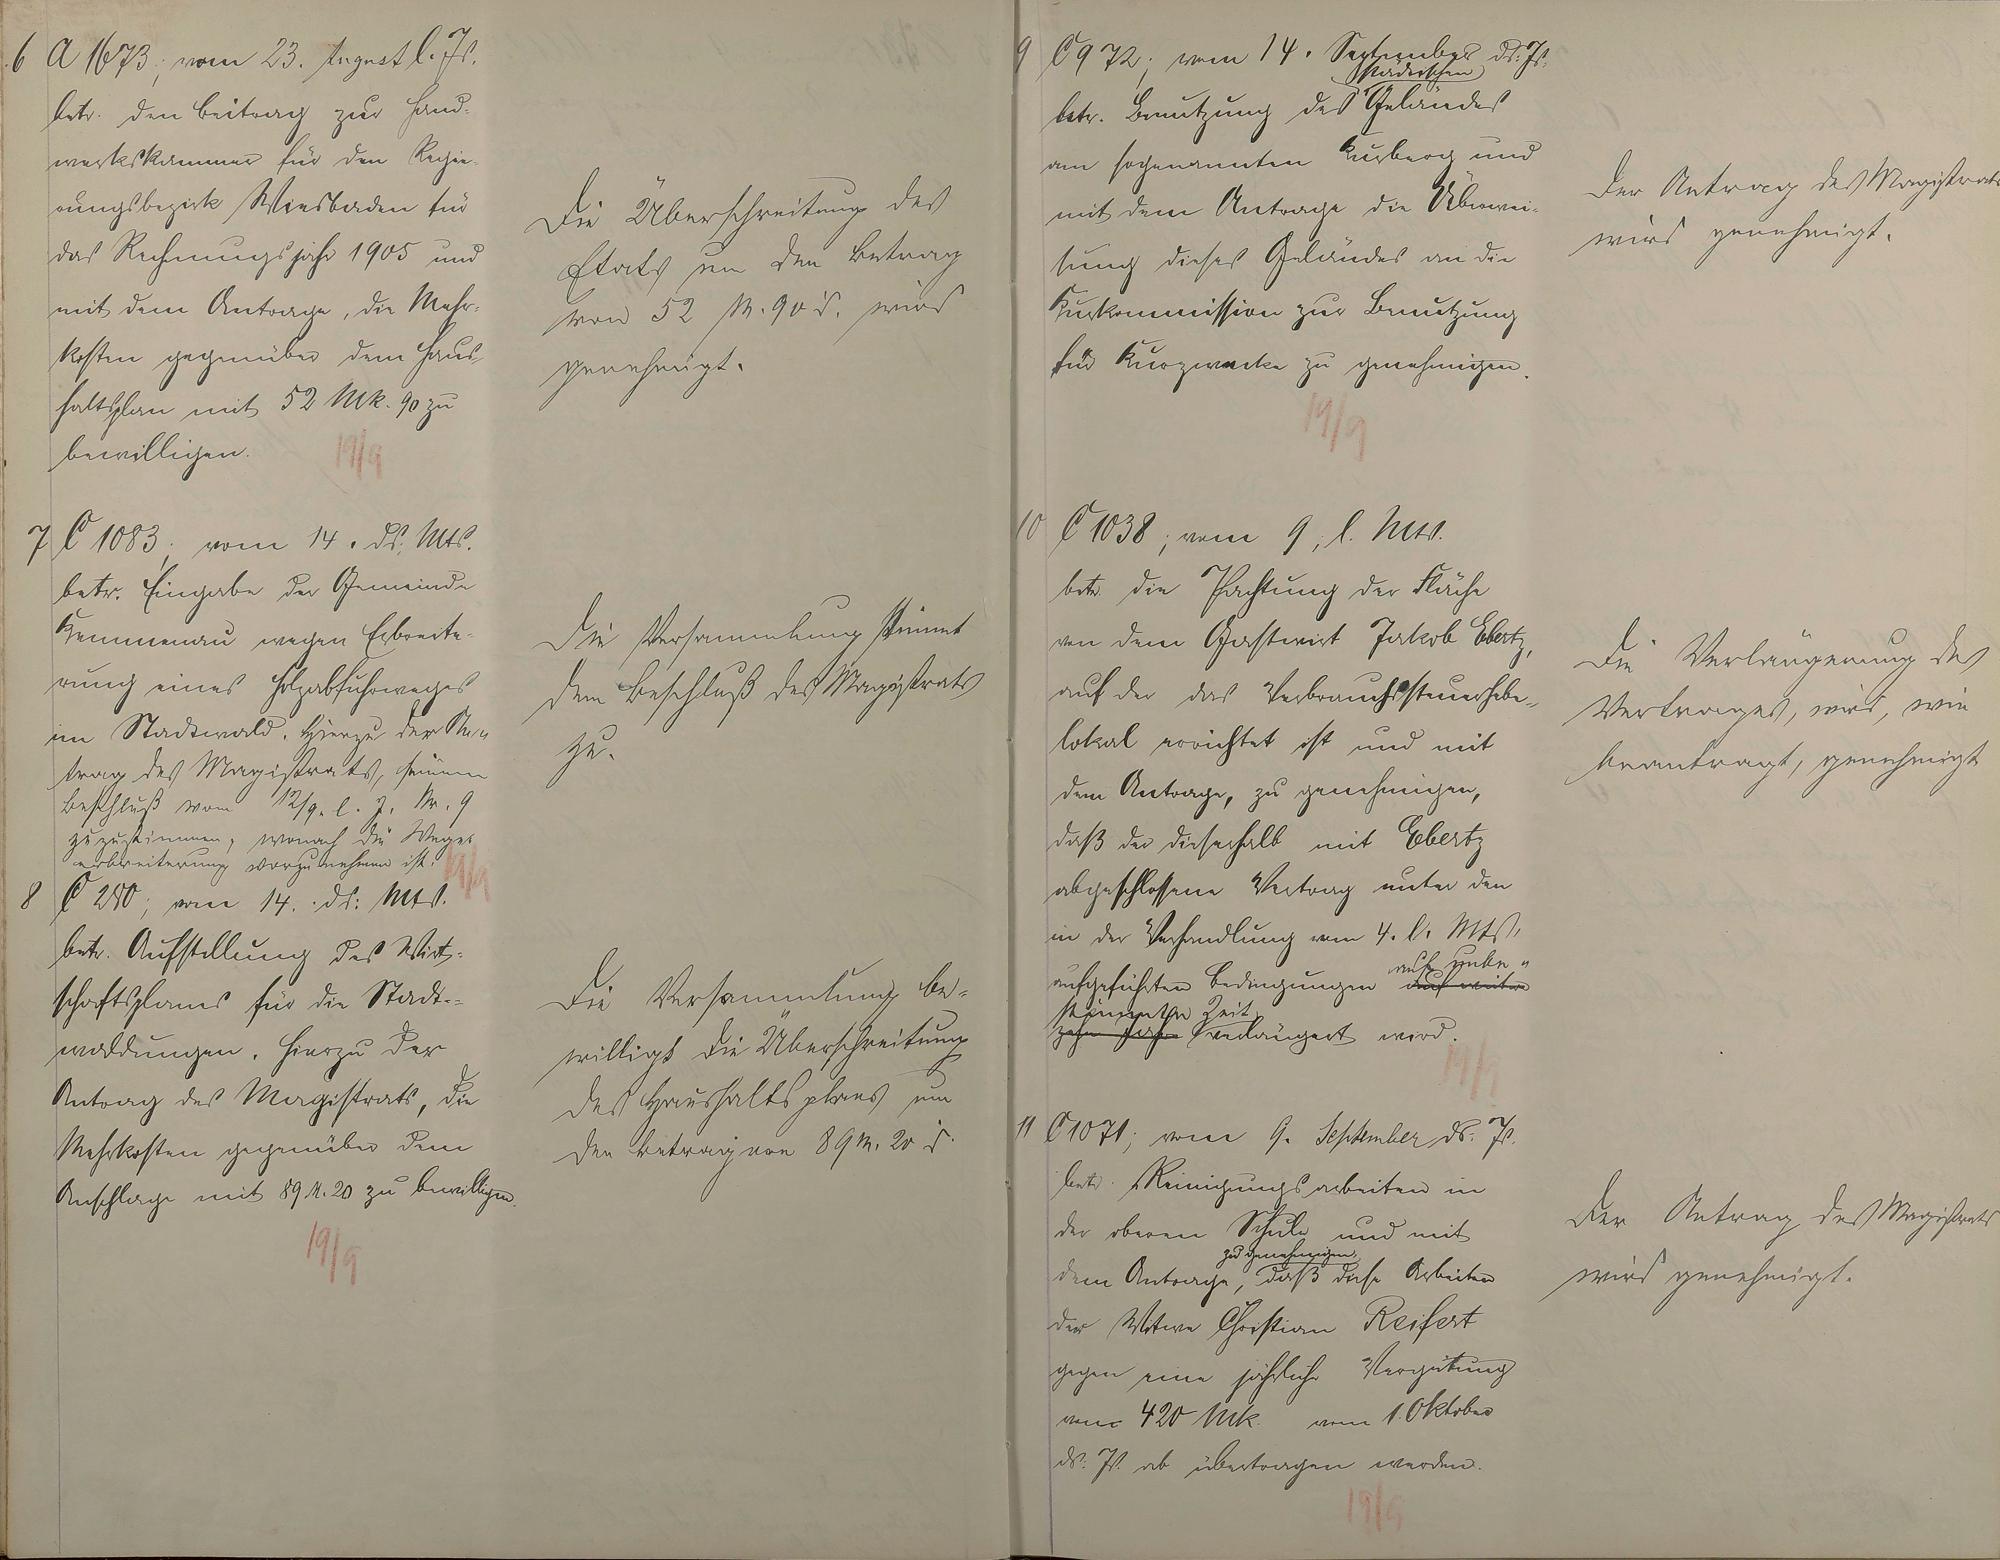 6 A 1673; vom 23. August l. Js.
betr. den Beitrag zur Hand-
werkskammer für den Regie-
rungsbezirk Wiesbaden für
das Rechnungsjahr 1905 und
mit dem Antrage, die Mehr-
kosten gegenüber dem Haus-
haltsplan mit 52 Mk. 90 zu
bewilligen.
19/9
Die Überschreitung des
Etats um den Betrag
von 52 M. 90 d. wird
genehmigt.
7 C 1083; vom 14. ds. Mts.
betr. Eingabe der Gemeinde
Kemmenau wegen Erbreite-
rung eines Holzabfuhrweges
im Stadtwald. Hierzu der An-
trag des Magistrats, seinem
Beschluß vom 12/9. l. J. Nr. 9
zuzustimmen, wonach die Weges
erbreiterung vorzunehmen ist.
19/9
Die Versammlung stimmt
dem Beschluß des Magistrats
zu.
8 C 280; vom 14. ds. Mts.
betr. Aufstellung des Wirt-
schaftsplans für die Stadt-
waldungen. Hierzu der
Antrag des Magistrats, die
Mehrkosten gegenüber dem
Anschlage mit 89 M. 20 zu bewilligen.
19/9
Die Versammlung be-
willigt die Überschreitung
des Haushaltsplans um
den Betrag von 89 M. 20 d.
9 C 972; vom 14. September ds. Js.
städtischen
betr. Benutzung des Geländes
am sogenannten Kurberg und
mit dem Antrage die Überwei-
sung dieses Geländes an die
Kurkommission zur Benutzung
für Kurzwecke zu genehmigen.
19/9
Der Antrag des Magistrats
wird genehmigt.
10 C 1038; vom 9. l. Mts.
betr. die Pachtung der Fläche
von dem Gastwirt Jakob Ebertz,
auf der das Verbrauchssteuerhebe-
lokal errichtet ist und mit
dem Antrage, zu genehmigen,
daß der dieserhalb mit Ebertz
abgeschlossene Vertrag unter den
in der Verhandlung vom 4. l. Mts.
auf unbe-
aufgeführten Bedingungen auf weitere
stimmte Zeit
zehn Jahre verlängert wird.
19/9
Die Verlängerung des
Vertrages, wird, wie
beantragt, genehmigt
11 C 1071; vom 9. September ds. Js.
betr. Reinigungsarbeiten in
der oberen Schule und mit
zu genehmigen,
dem Antrage, daß diese Arbeiten
der Witwe Christian Reifert
gegen eine jährliche Vergütung
von 420 Mk. vom 1. Oktober
ds. Js. ab übertragen werden.
19/9
Der Antrag des Magistrats
wird genehmigt.